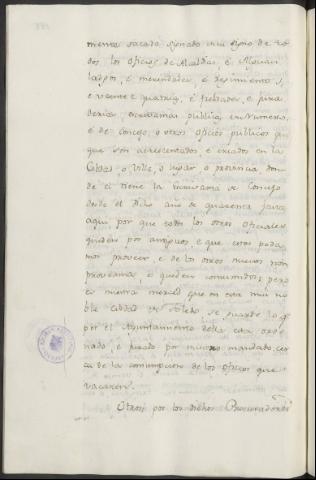 mientos sacado signado en su signo de to-
dos los oficios de Alcaldias, é Alguaci-
ladgos, é merindades, é Regimientos, é
veinte é quatrias, é fieldades, é jura-
derias, escribanias públicas en Número,
é de Concejo, ú otros oficios públicos qu
que son acrescentados, é criados en la
Cibdad, ó Villa, ó Lugar, ó provincia don-
de el tiene la escribania de Concejo
desde el dicho año de quarenta fasta
aqui por que estos los otros oficiales
queden por antiguos, é que estos poda-
mos proveer, é de los otros nuevos non
proveamos, é queden consumidos; pero
es nuestra merced que en esta mui no-
ble cibdad de Toledo se guarde lo qe
por el Ayuntamiento della esta orde-
nado, é jurado por nuestro mandado, cer-
ca de la consumpcion de los oficios que
vacaren.
Otrosí por los dichos Procuradores